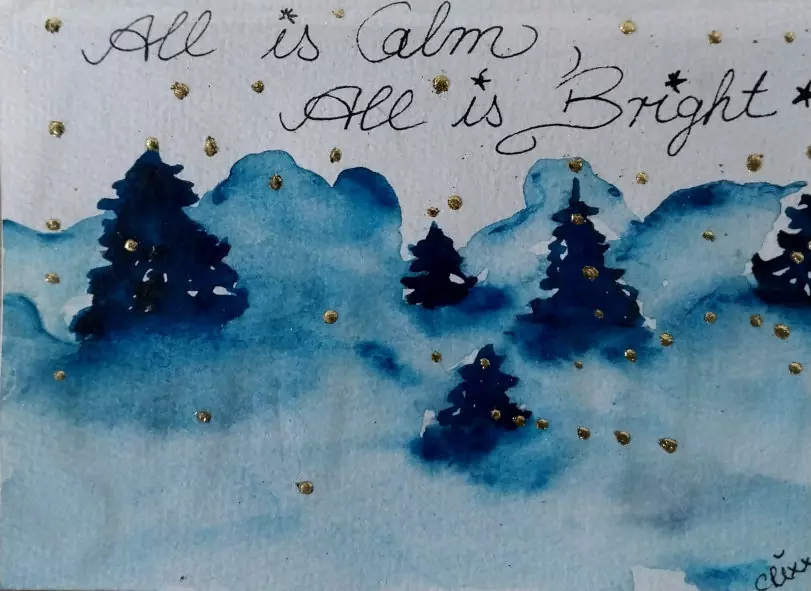 All is Calm,
All is Bright *